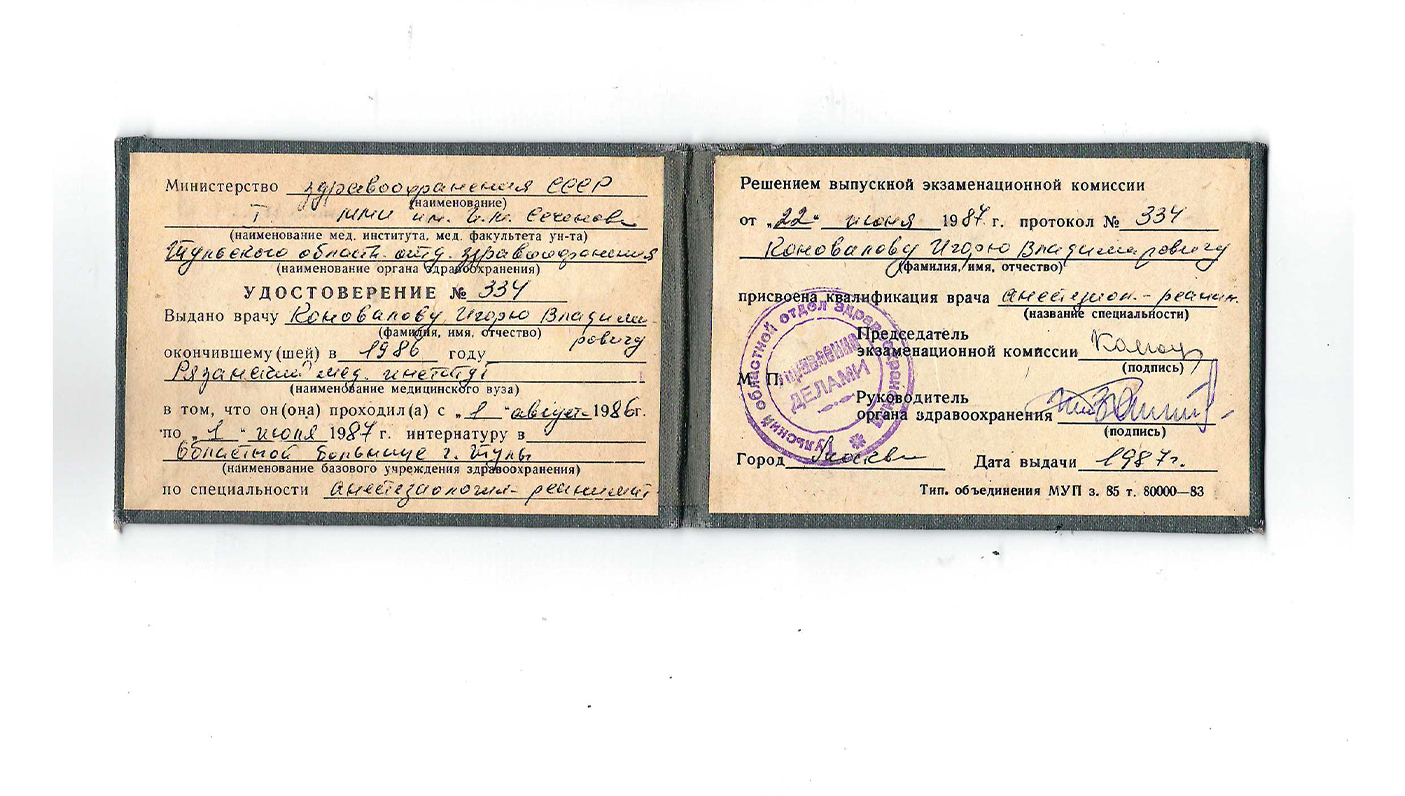 Министерство здравоохранения СССР
(наименование)
I ММИ им. И.М. Сеченова
(наименование мед. института, мед. факультета ун-та)
Тульского областн. отд. здравоохранения
(наименование органа здравоохранения)
УДОСТОВЕРЕНИЕ № 334
Выдано врачу Коновалову Игорю Владими-
(фамилия, имя, отчество) ровичу
окончившему (шей) в 1986 году
Рязанский мед. институт
(наименование медицинского вуза)
в том, что он (она) проходил (а) с „1“ август 1986г.
по „1“ июля 1987 г. интернатуру в
Областной больнице г. Тулы
(наименование базового учреждения здравоохранения)
по специальности анестезиология-реанимат.
Решением выпускной экзаменационной комиссии
от „22“ июня 1987 г. протокол № 334
Коновалову Игорю Владимировичу
(фамилия, имя, отчество)
присвоена квалификация врача анестезиол.-реаним.
(название специальности)
Председатель
экзаменационной комиссии
(подпись)
М. П.
Руководитель
органа здравоохранения
(подпись)
Город Москва Дата выдачи 1987г.
Тип. объединения МУП з. 85 т. 80000—83
Тульский областной отдел здравоохранения
Управление
ДЕЛАМИ